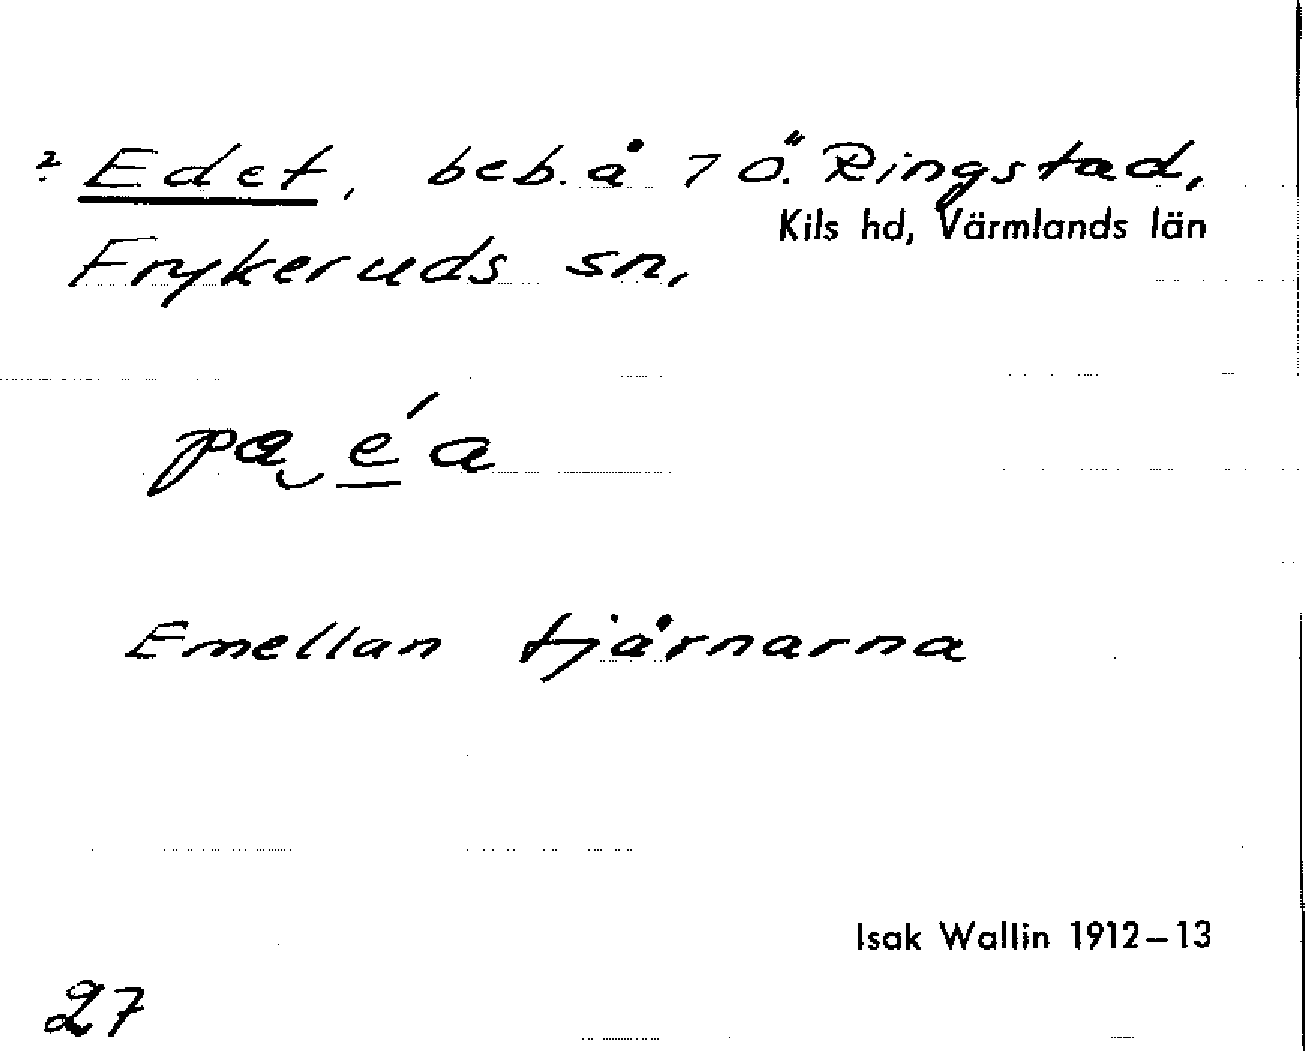 ? Edet, beb. å 7 Ö. Ringstad,
Kils hd, Värmlands län
Frykeruds sn,
pa‿é a
Emellan tjärnarna
Isak Wallin 1912–13
27